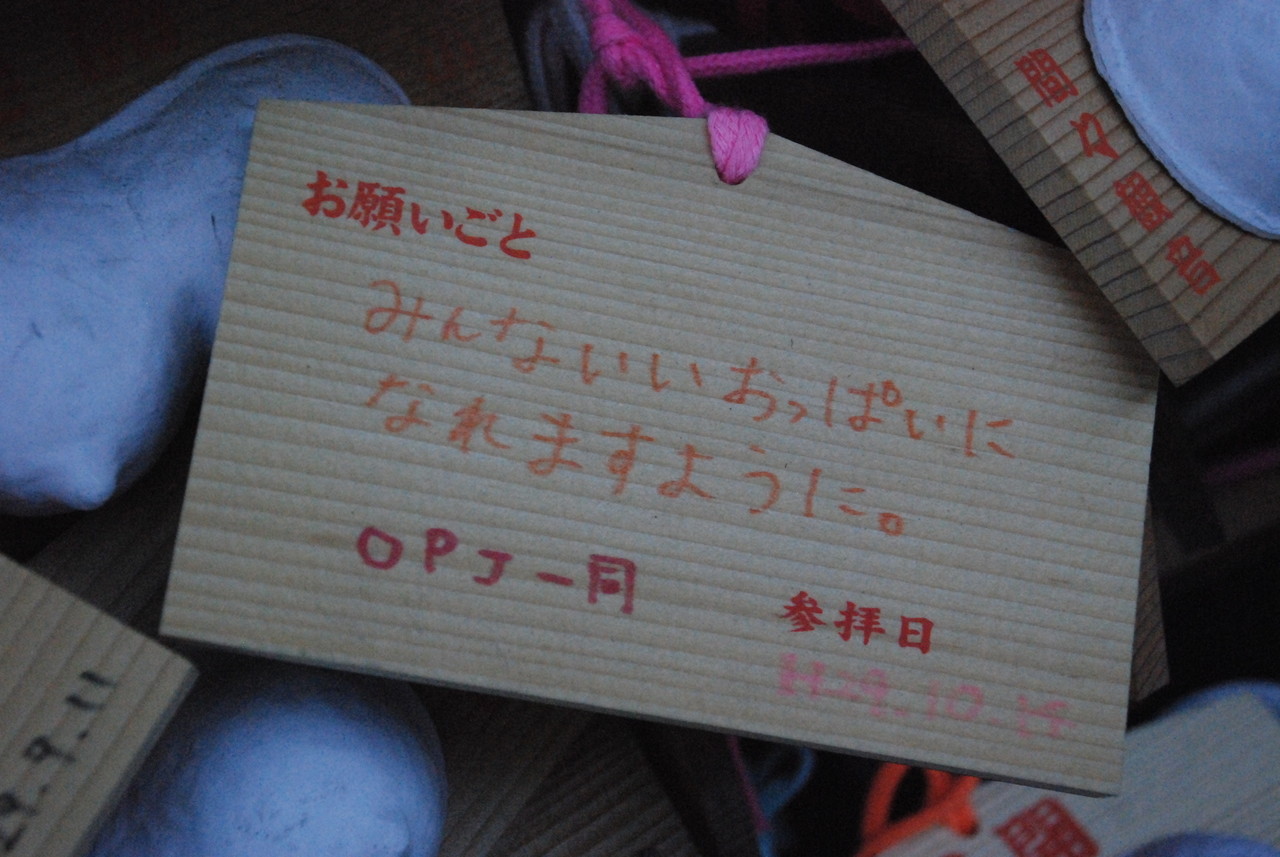 お願いごと
みんないいおっぱいに
なれますように。
OPJ一同
参拝日
H29.10.14
29.9.11